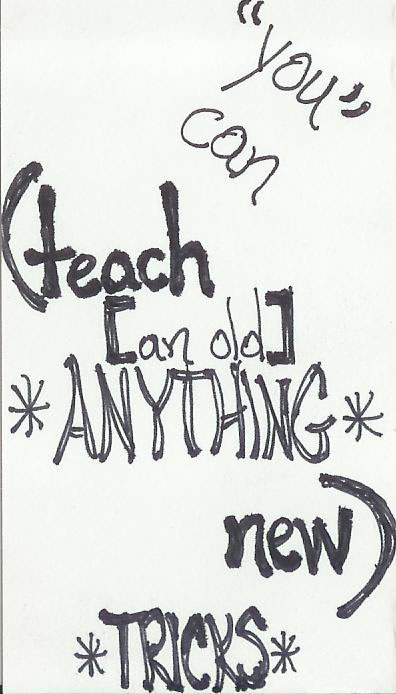 "you"
can
(teach
[an old]
*ANYTHING*
new)
*TRICKS*